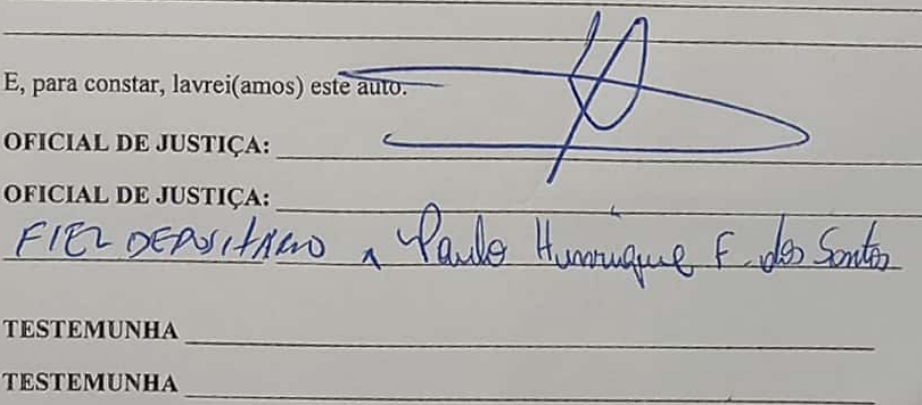 E, para constar, lavrei(amos) este auto.
OFICIAL DE JUSTIÇA:
OFICIAL DE JUSTIÇA:
FIEL DEPOSITARIO Paulo Henrique F. dos Santos
TESTEMUNHA
TESTEMUNHA